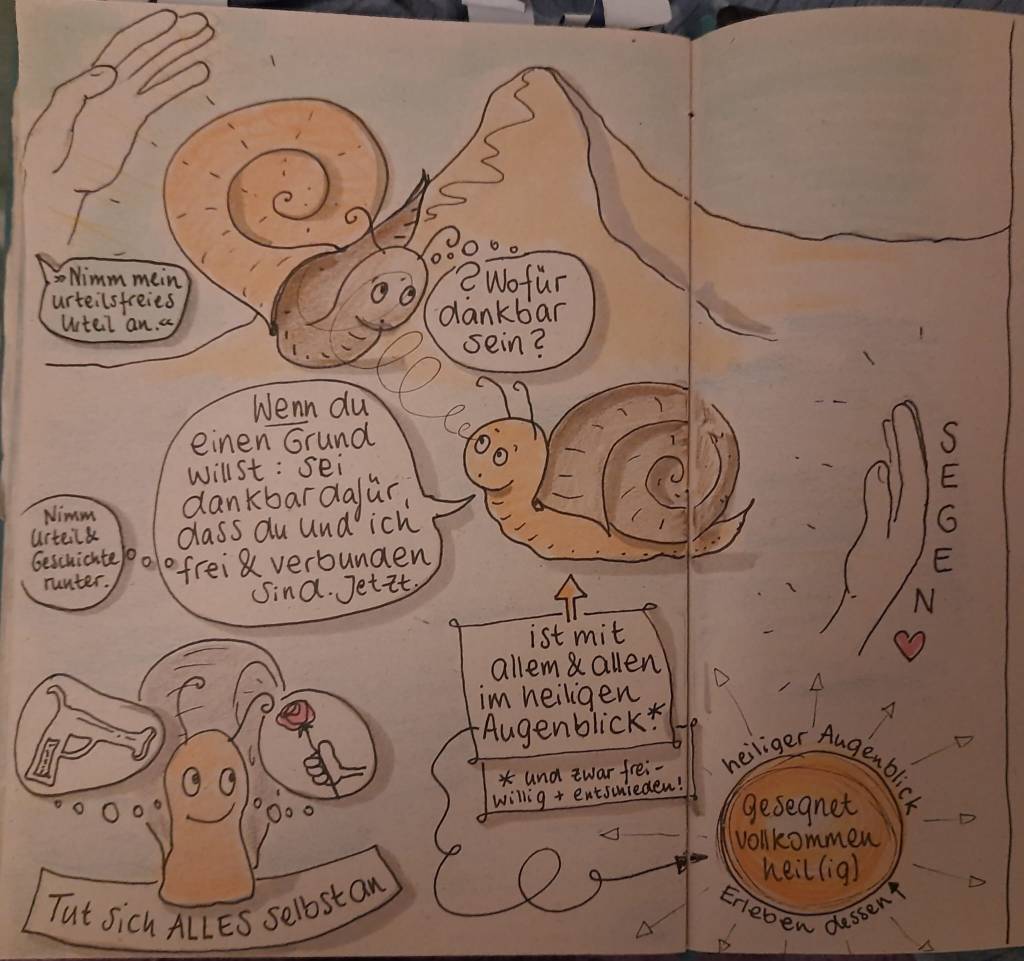 »Nimm mein
urteilsfreies
Urteil an.«
? Wofür
dankbar
sein?
Wenn du
einen Grund
willst: sei
dankbar dafür,
dass du und ich
frei & verbunden
sind. Jetzt.
Nimm
Urteil &
Geschichte
runter.
SEGEN
ist mit
allem & allen
im heiligen
Augenblick*
* und zwar frei-
willig + entschieden!
Tut sich ALLES selbst an
heiliger Augenblick
gesegnet
vollkommen
heil(ig)
Erleben dessen